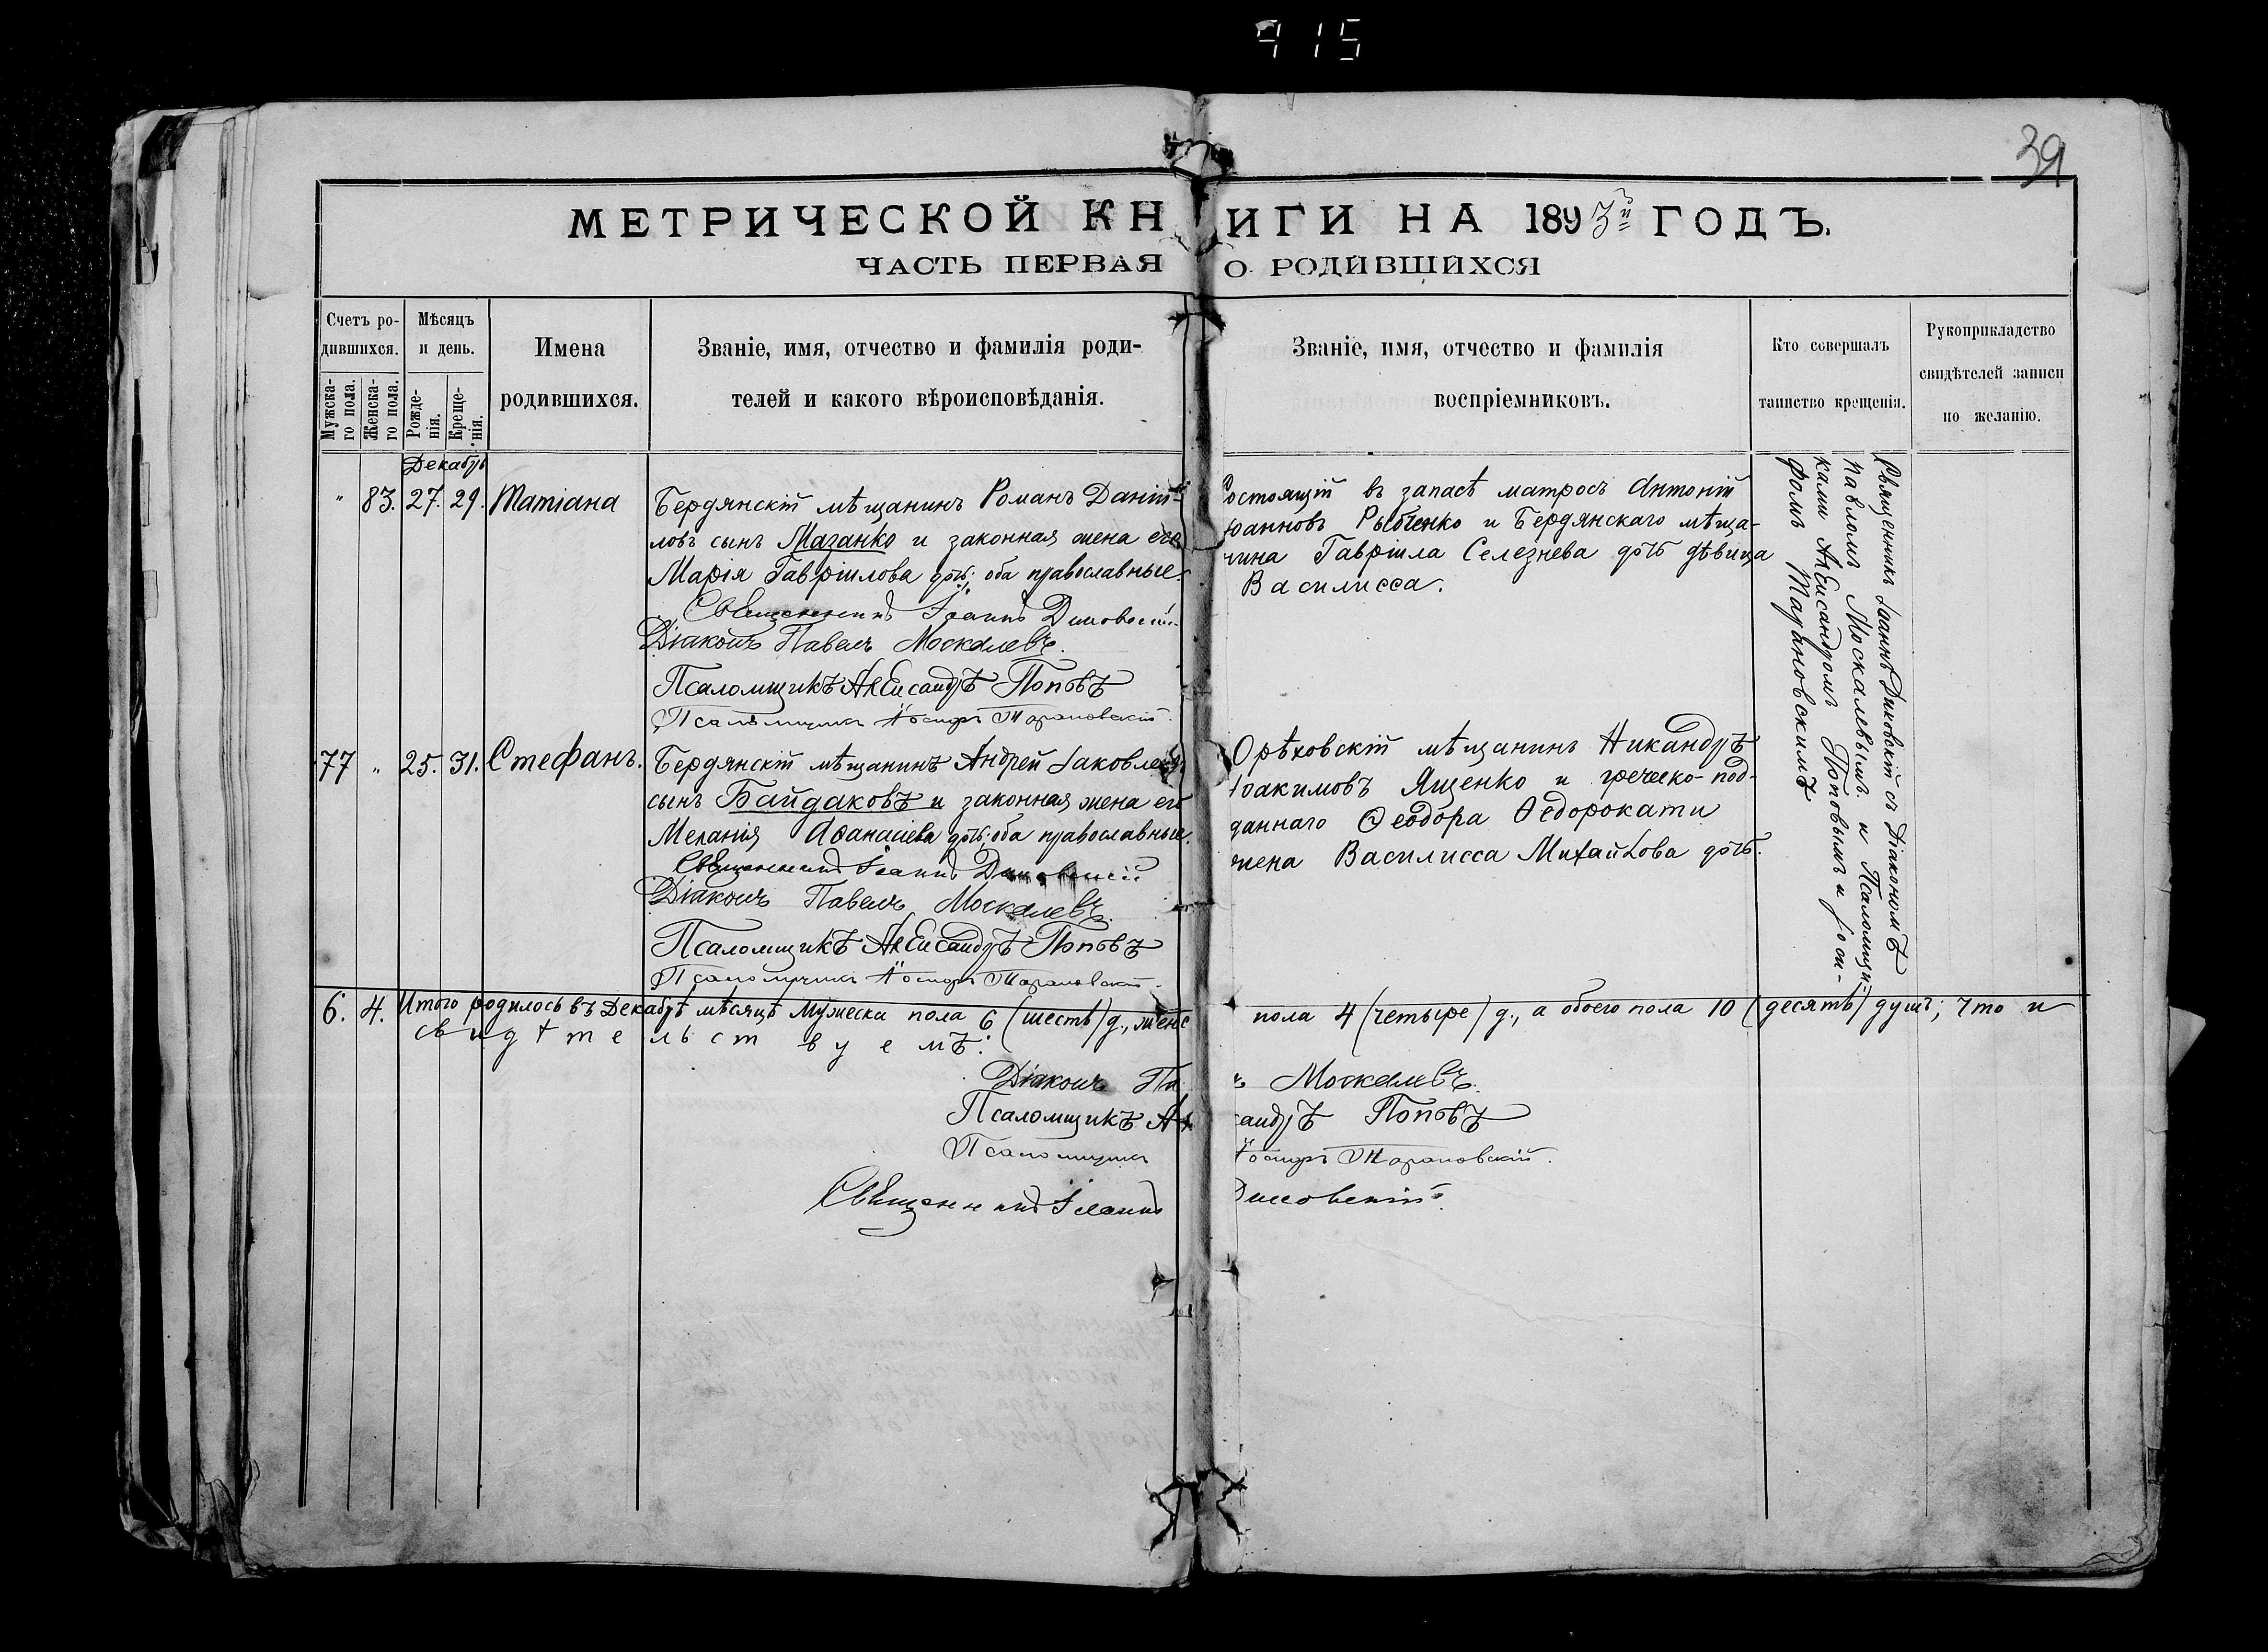 915
39
МЕТРИЧЕСКОЙ КНИГИ НА 1893й ГОДЪ.
ЧАСТЬ ПЕРВАЯ О РОДИВШИХСЯ
Счетъ ро-
дившихся.
Мужска-
го пола.
Женска-
го пола.
Мѣсяцъ
и день.
Рожде-
нія.
Креще-
нія.
Имена
родившихся.
Званіе, имя, отчество и фамилія роди-
телей и какого вѣроисповѣданія.
Званіе, имя, отчество и фамилія
воспріемниковъ.
Кто совершалъ
таинство крещенія.
Рукоприкладство
свидѣтелей записи
по желанію.
Декабрь
" 83. 27. 29. Татіана
Бердянскій мѣщанинъ Романъ Даніи-
ловъ сынъ Мазанко и законная жена его
Марія Гавріилова дочь; оба православные.
Священникъ Іоаннъ Диковскій
Діаконъ Павелъ Москалевъ.
Псаломщикъ Александръ Поповъ
Псаломщикъ Іосифъ Тарановскій.
Состоящій въ запасѣ матросъ Антоній
Іоанновъ Рыбченко и Бердянскаго мѣща-
нина Гавріила Селезнева дочь дѣвица
Василисса.
Священникъ Іоаннъ Диковскій съ Діакономъ
Павломъ Москалевымъ и Псаломщи-
ками Александромъ Поповымъ и Іоси-
фомъ Тарановскимъ
77 " 25. 31. Стефанъ.
Бердянскій мѣщанинъ Андрей Іаковлевъ
сынъ Байдаковъ и законная жена его
Меланія Аѳанасіева дочь; оба православные.
Священникъ Іоаннъ Диковскій
Діаконъ Павелъ Москалевъ.
Псаломщикъ Александръ Поповъ
Псаломщикъ Іосифъ Тарановскій.
Орѣховскій мѣщанинъ Никандръ
Іоакимовъ Ященко и греческо-под-
даннаго Ѳеодора Ѳедорокати
жена Василисса Михайлова дочь.
6. 4. Итого родилось въ Декабрѣ мѣсяцѣ мужеска пола 6 (шесть) д., женс пола 4 (четыре) д., а обоего пола 10 (десять) душъ; что и
свидѣтельствуемъ:
Діаконъ Па Москалевъ.
Псаломщикъ Ал сандръ Поповъ
Псаломщикъ Іосифъ Тарановскій.
Священникъ Іоаннъ Диковскій.